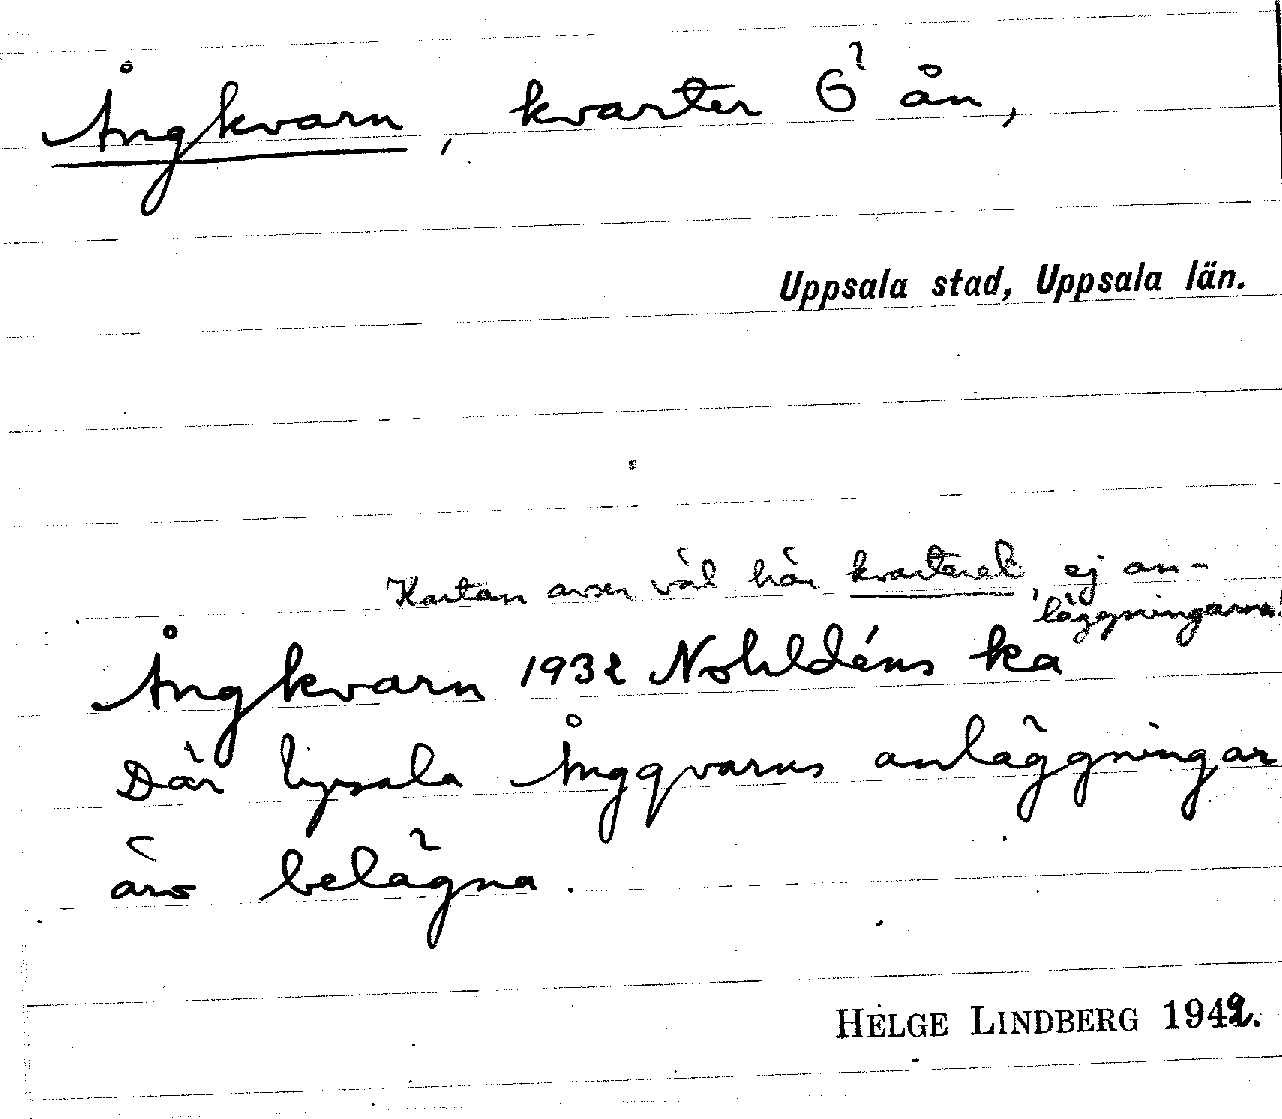 Ångkvarn, kvarter Ö ån,
Uppsala stad, Uppsala län.
Kartan avser väl här kvarteret, ej an-
läggningarna!
Ångkvarn 1932 Nohldéns ka
Där Upsala Ångqvarns anläggningar
äro belägna.
HELGE LINDBERG 1942.